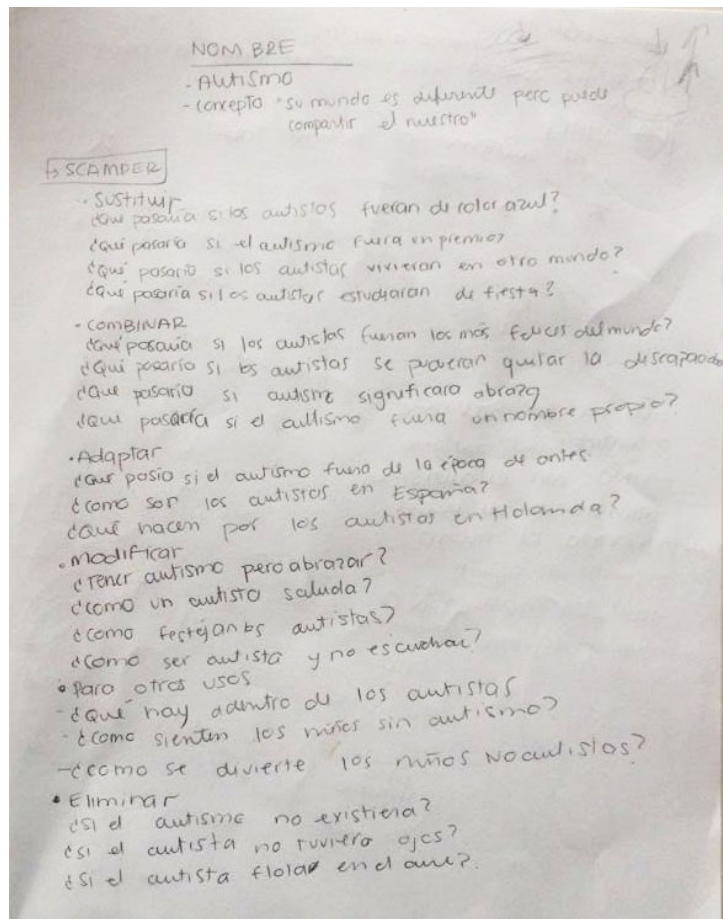 NOMBRE
- Autismo
- concepto "su mundo es diferente pero puede
compartir el nuestro"
↳ SCAMPER
• Sustituir
¿Qué pasaria si los autistas fueran de color azul?
¿Qué pasaria si el autismo fuera un premio?
¿Qué pasaria si los autistas vivieran en otro mundo?
¿Qué pasaria si los autistas estudiaran de fiesta?
• COMBINAR
¿Qué pasaria si los autistas fueran los más felices del mundo?
¿Qué pasaria si los autistas se pudieran quitar la discapacidad
¿Que pasaria si autismo significara abrazo
¿Que pasaría si el autismo fuera un nombre propio?
• Adaptar
¿Que pasio si el autismo fuera de la época de antes
¿como son los autistas en España?
¿Qué hacen por los autistas en Holanda?
• Modificar
¿Tener autismo pero abrazar?
¿como un autista saluda?
¿como festejan los autistas?
¿como ser autista y no escuchar?
• Para otros usos
- ¿Qué hay adentro de los autistas
- ¿como sienten los niños sin autismo?
- ¿como se divierte los niños No autistas?
• Eliminar
¿Si el autismo no existiera?
¿si el autista no tuviera ojos?
¿Si el autista flotar en el aire?